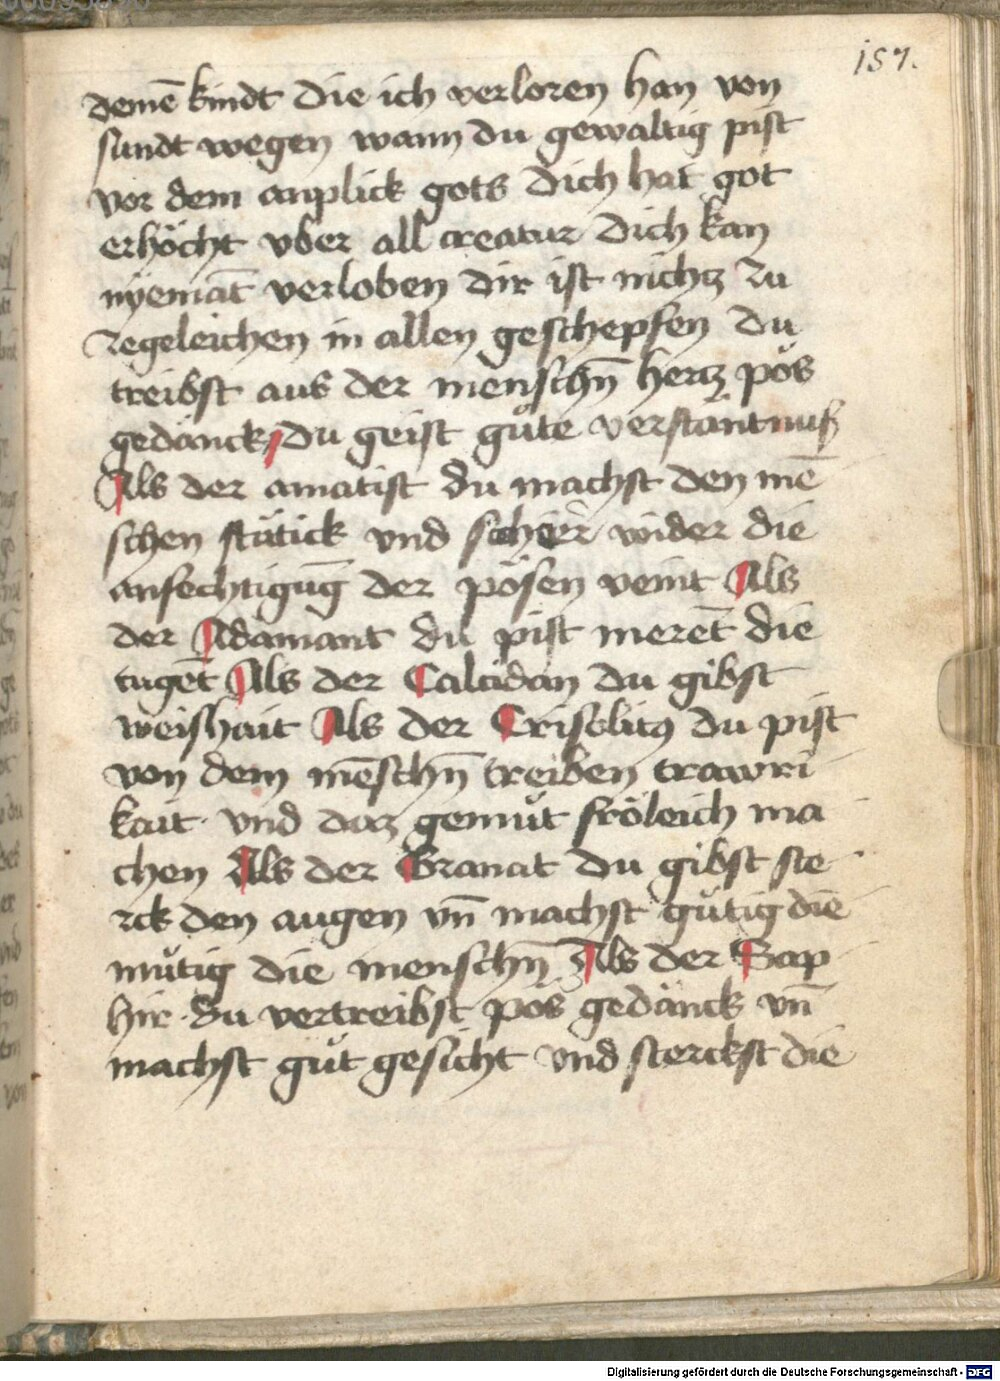 157.
deinē kindt die ich verloren han von
sundt wegen wann du gewaltig pist
vor dem anplick gots dich hat got
erhöcht vber all creatur dich kan
nyemāt verloben dir ist nichtz zu
zegeleichen in allen geschepfen du
treibst aus der menschn̄ hertz pös
gedänck du geist gůte verstäntnuß
Als der amatist du machst den mē
schen stätick vnd wider die
anfechtigūg der pösen veint Als
der Adamant du pist merēt die
tugēt Als der Calcidan du gibst
weishait Als der Crisolitꝰ du pist
von dem mēschn̄ treiben trawri
kait vnd daz gemůt fröleich ma
chen Als der Granat du gibst ste
rck den augen vn̄ machst gůtig die
můtig die menschn̄ Als der Sap
hir du vertreibst pos gedänck vn̄
machst gůt gesicht vnd sterckst die
Digitalisierung gefördert durch die Deutsche Forschungsgemeinschaft - DFG